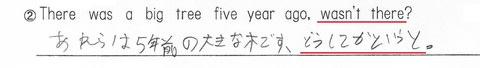 ② There was a big tree five year ago, wasn't there?
あれらは5年前の大きな木です、どうしてかというと。